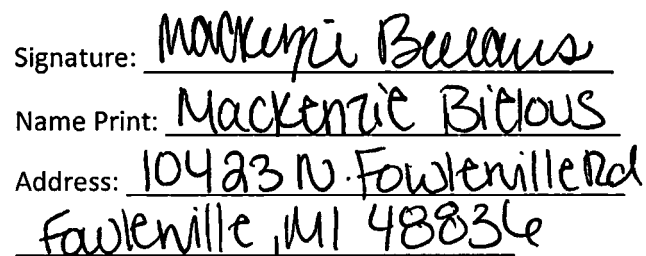 Signature: Mackenzie Bielous
Name Print: Mackenzie Bielous
Address: 10423 N. Fowlerville Rd
Fowlerville, MI 48836